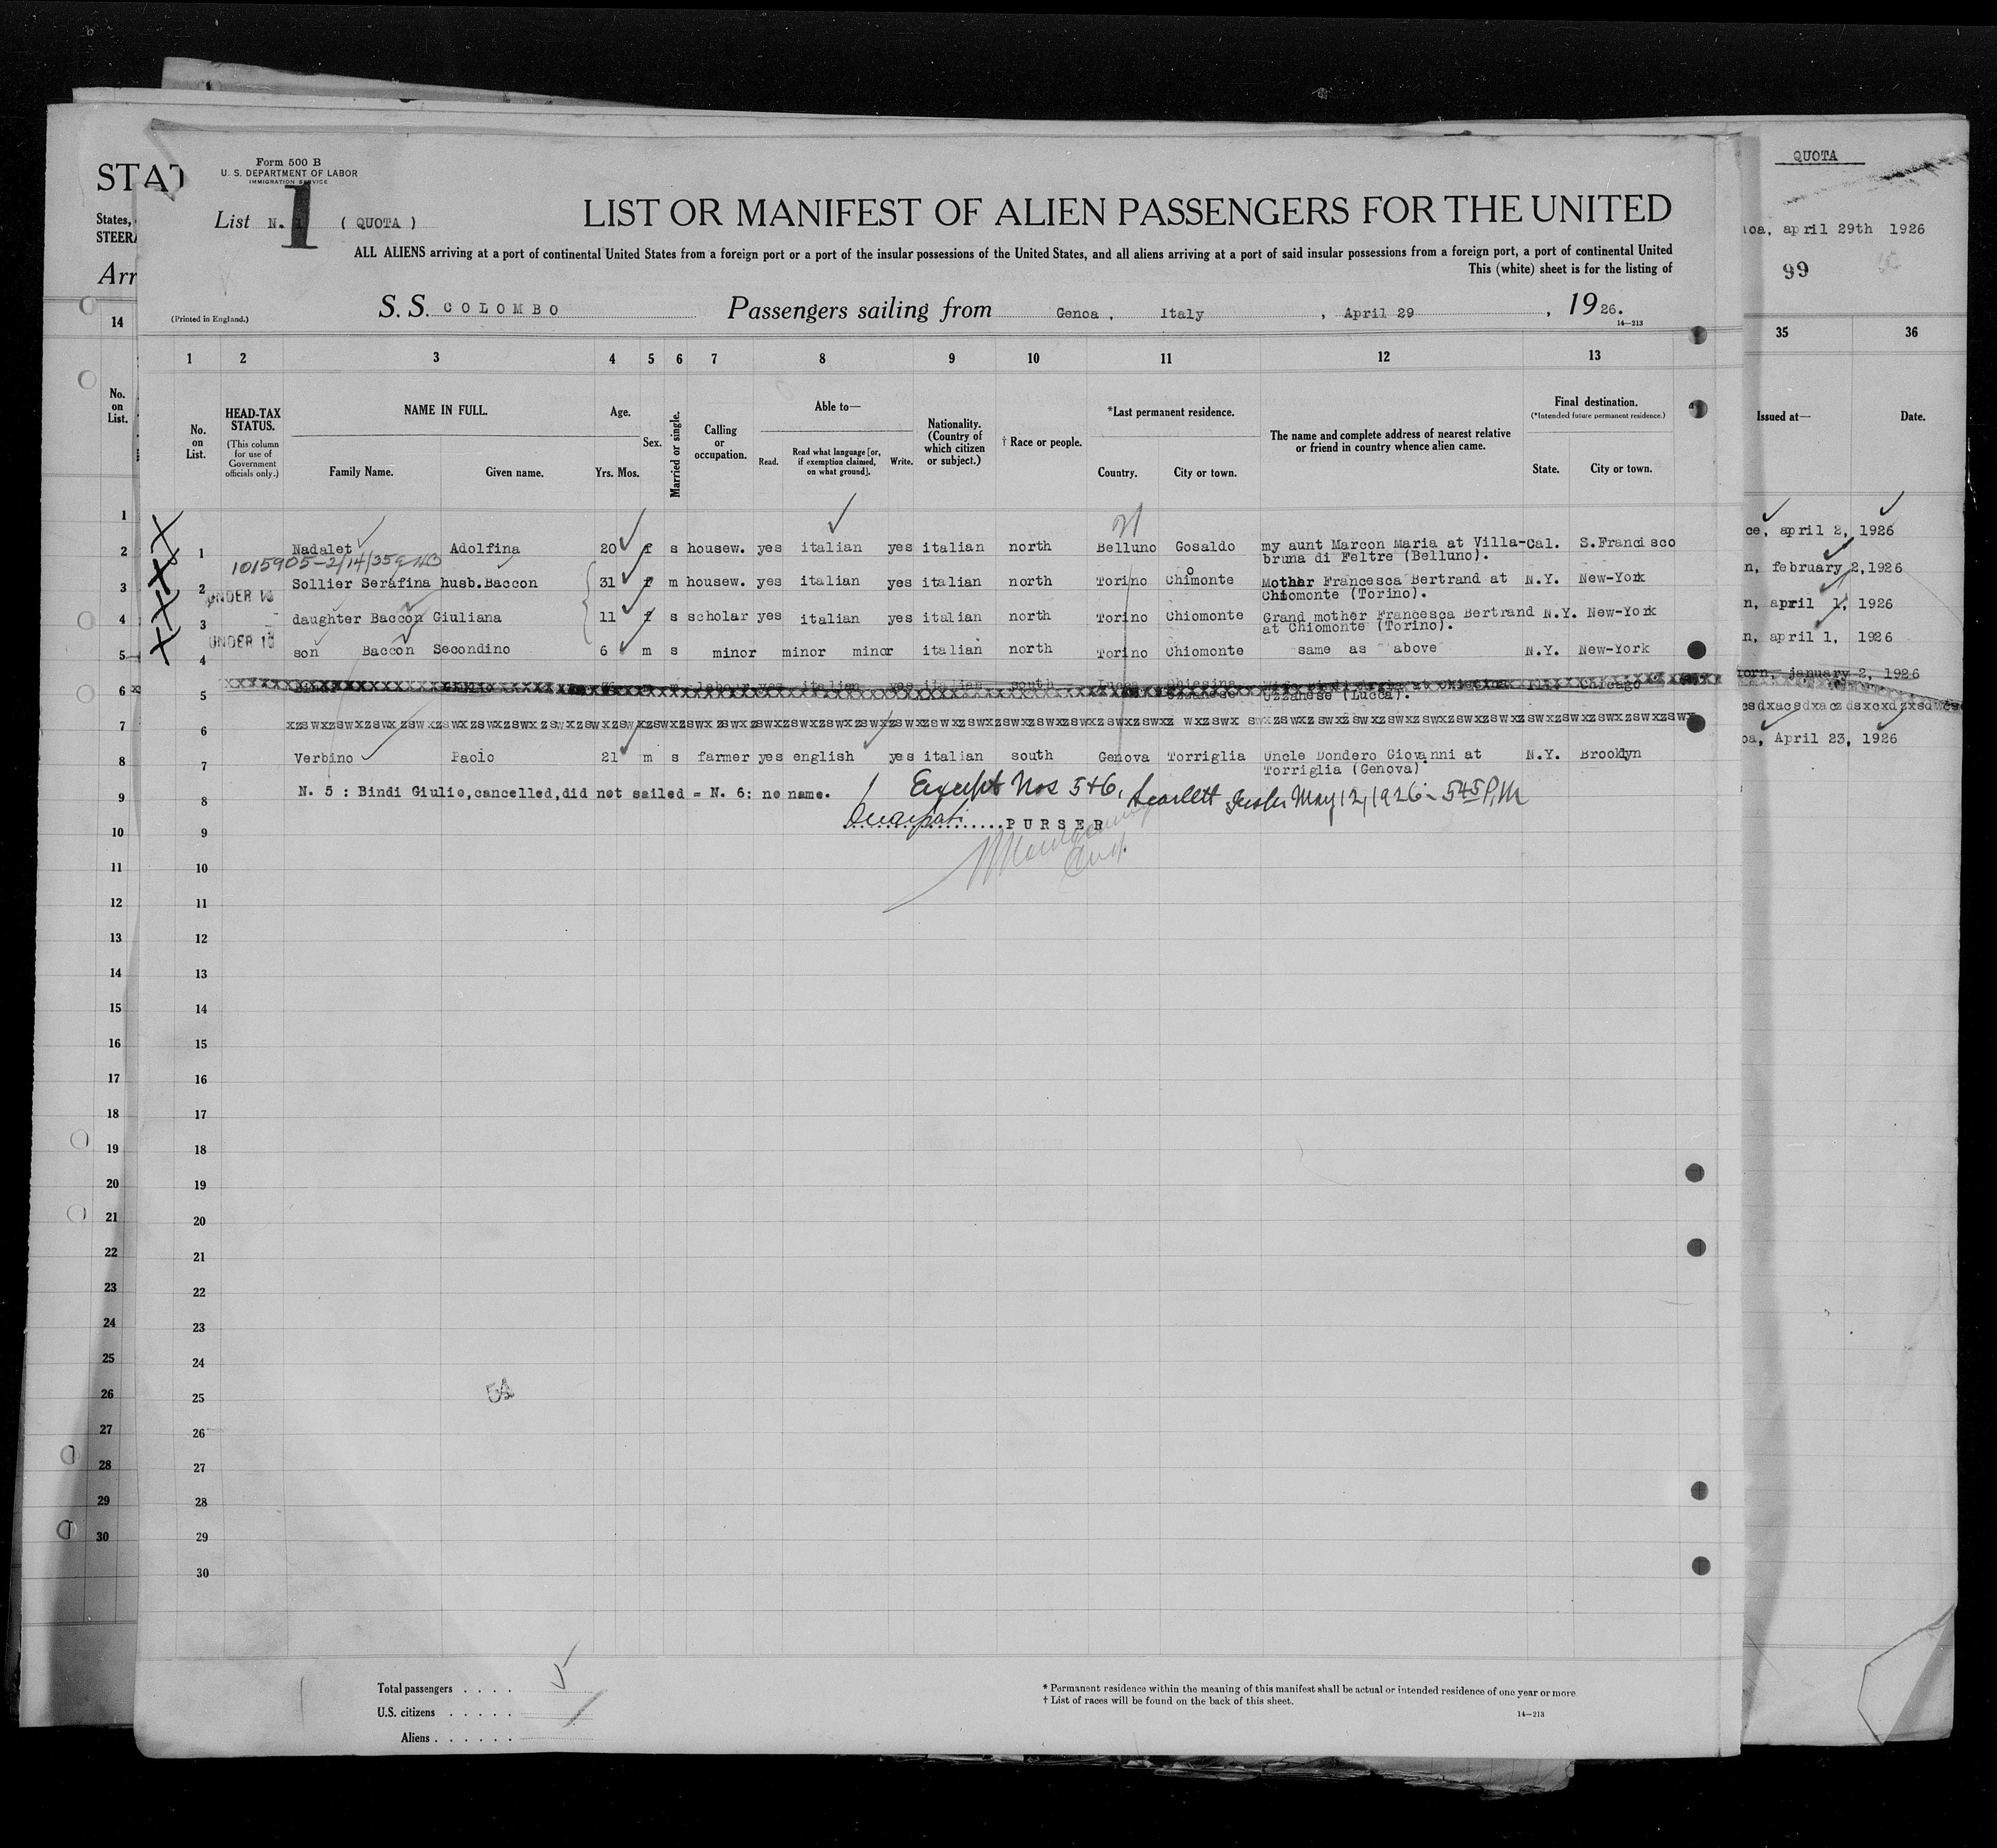 Form 500 B
U. S. DEPARTMENT OF LABOR
IMMIGRATION SERVICE
List N. 1 ( QUOTA )
1
LIST OR MANIFEST OF ALIEN PASSENGERS FOR THE UNITED
ALL ALIENS arriving at a port of continental United States from a foreign port or a port of the insular possessions of the United States, and all aliens arriving at a port of said insular possessions from a foreign port, a port of continental United
This (white) sheet is for the listing of
(Printed in England.)
S. S. COLOMBO Passengers sailing from Genoa , Italy , April 29 , 1926.
14—213
1 2 3 4 5 6 7 8 9 10 11 12 13
No. on List.
HEAD-TAX STATUS.
(This column for use of Government officials only.)
NAME IN FULL.
Family Name. Given name.
Age.
Yrs. Mos.
Sex.
Married or single.
Calling or occupation.
Able to—
Read. Read what language [or, if exemption claimed, on what ground]. Write.
Nationality. (Country of which citizen or subject.)
† Race or people.
*Last permanent residence.
Country. City or town.
The name and complete address of nearest relative or friend in country whence alien came.
Final destination.
(*Intended future permanent residence.)
State. City or town.
1 Nadalet Adolfina 20 f s housew. yes italian yes italian north Belluno Gosaldo my aunt Marcon Maria at Villa-Cal. S.Francisco
bruna di Feltre (Belluno).
1015905-2/14/35
2 Sollier Serafina husb.Baccon 31 f m housew. yes italian yes italian north Torino Chimonte Mother Francesca Bertrand at N.Y. New-York
o
Chiomonte (Torino).
UNDER 16
3 daughter Baccon Giuliana 11 f s scholar yes italian yes italian north Torino Chiomonte Grand mother Francesca Bertrand N.Y. New-York
at Chiomonte (Torino).
UNDER 16
4 son Baccon Secondino 6 m s minor minor minor italian north Torino Chiomonte same as above N.Y. New-York
5 labour yes italian yes italian south Lucca Chiesina Chicago
Uzzanese Uzzanese (Lucca).
6
7 Verbino Paolo 21 m s farmer yes english yes italian south Genova Torriglia Uncle Dondero Giovanni at N.Y. Brooklyn
Torriglia (Genova)
8 N. 5 : Bindi Giulio,cancelled,did not sailed = N. 6: no name.
Except Nos 5+6, May 12, 1926 - 545 P.M
9 PURSER
10
11
12
13
14
15
16
17
18
19
20
21
22
23
24
25
26
27
28
29
30
54
Total passengers . . . . 5
U.S. citizens . . . . .
Aliens . . . . . .
* Permanent residence within the meaning of this manifest shall be actual or intended residence of one year or more.
† List of races will be found on the back of this sheet.
14—213
STAT
States,
STEERA
Arr
14
No. on List.
1
2
3
4
5
6
7
8
9
10
11
12
13
14
15
16
17
18
19
20
21
22
23
24
25
26
27
28
29
30
QUOTA
oa, april 29th 1926
99
35 36
Issued at— Date.
ce, april 2, 1926
n, february 2,1926
n, april 1, 1926
n, april 1, 1926
orn, january 2, 1926
oa, April 23, 1926